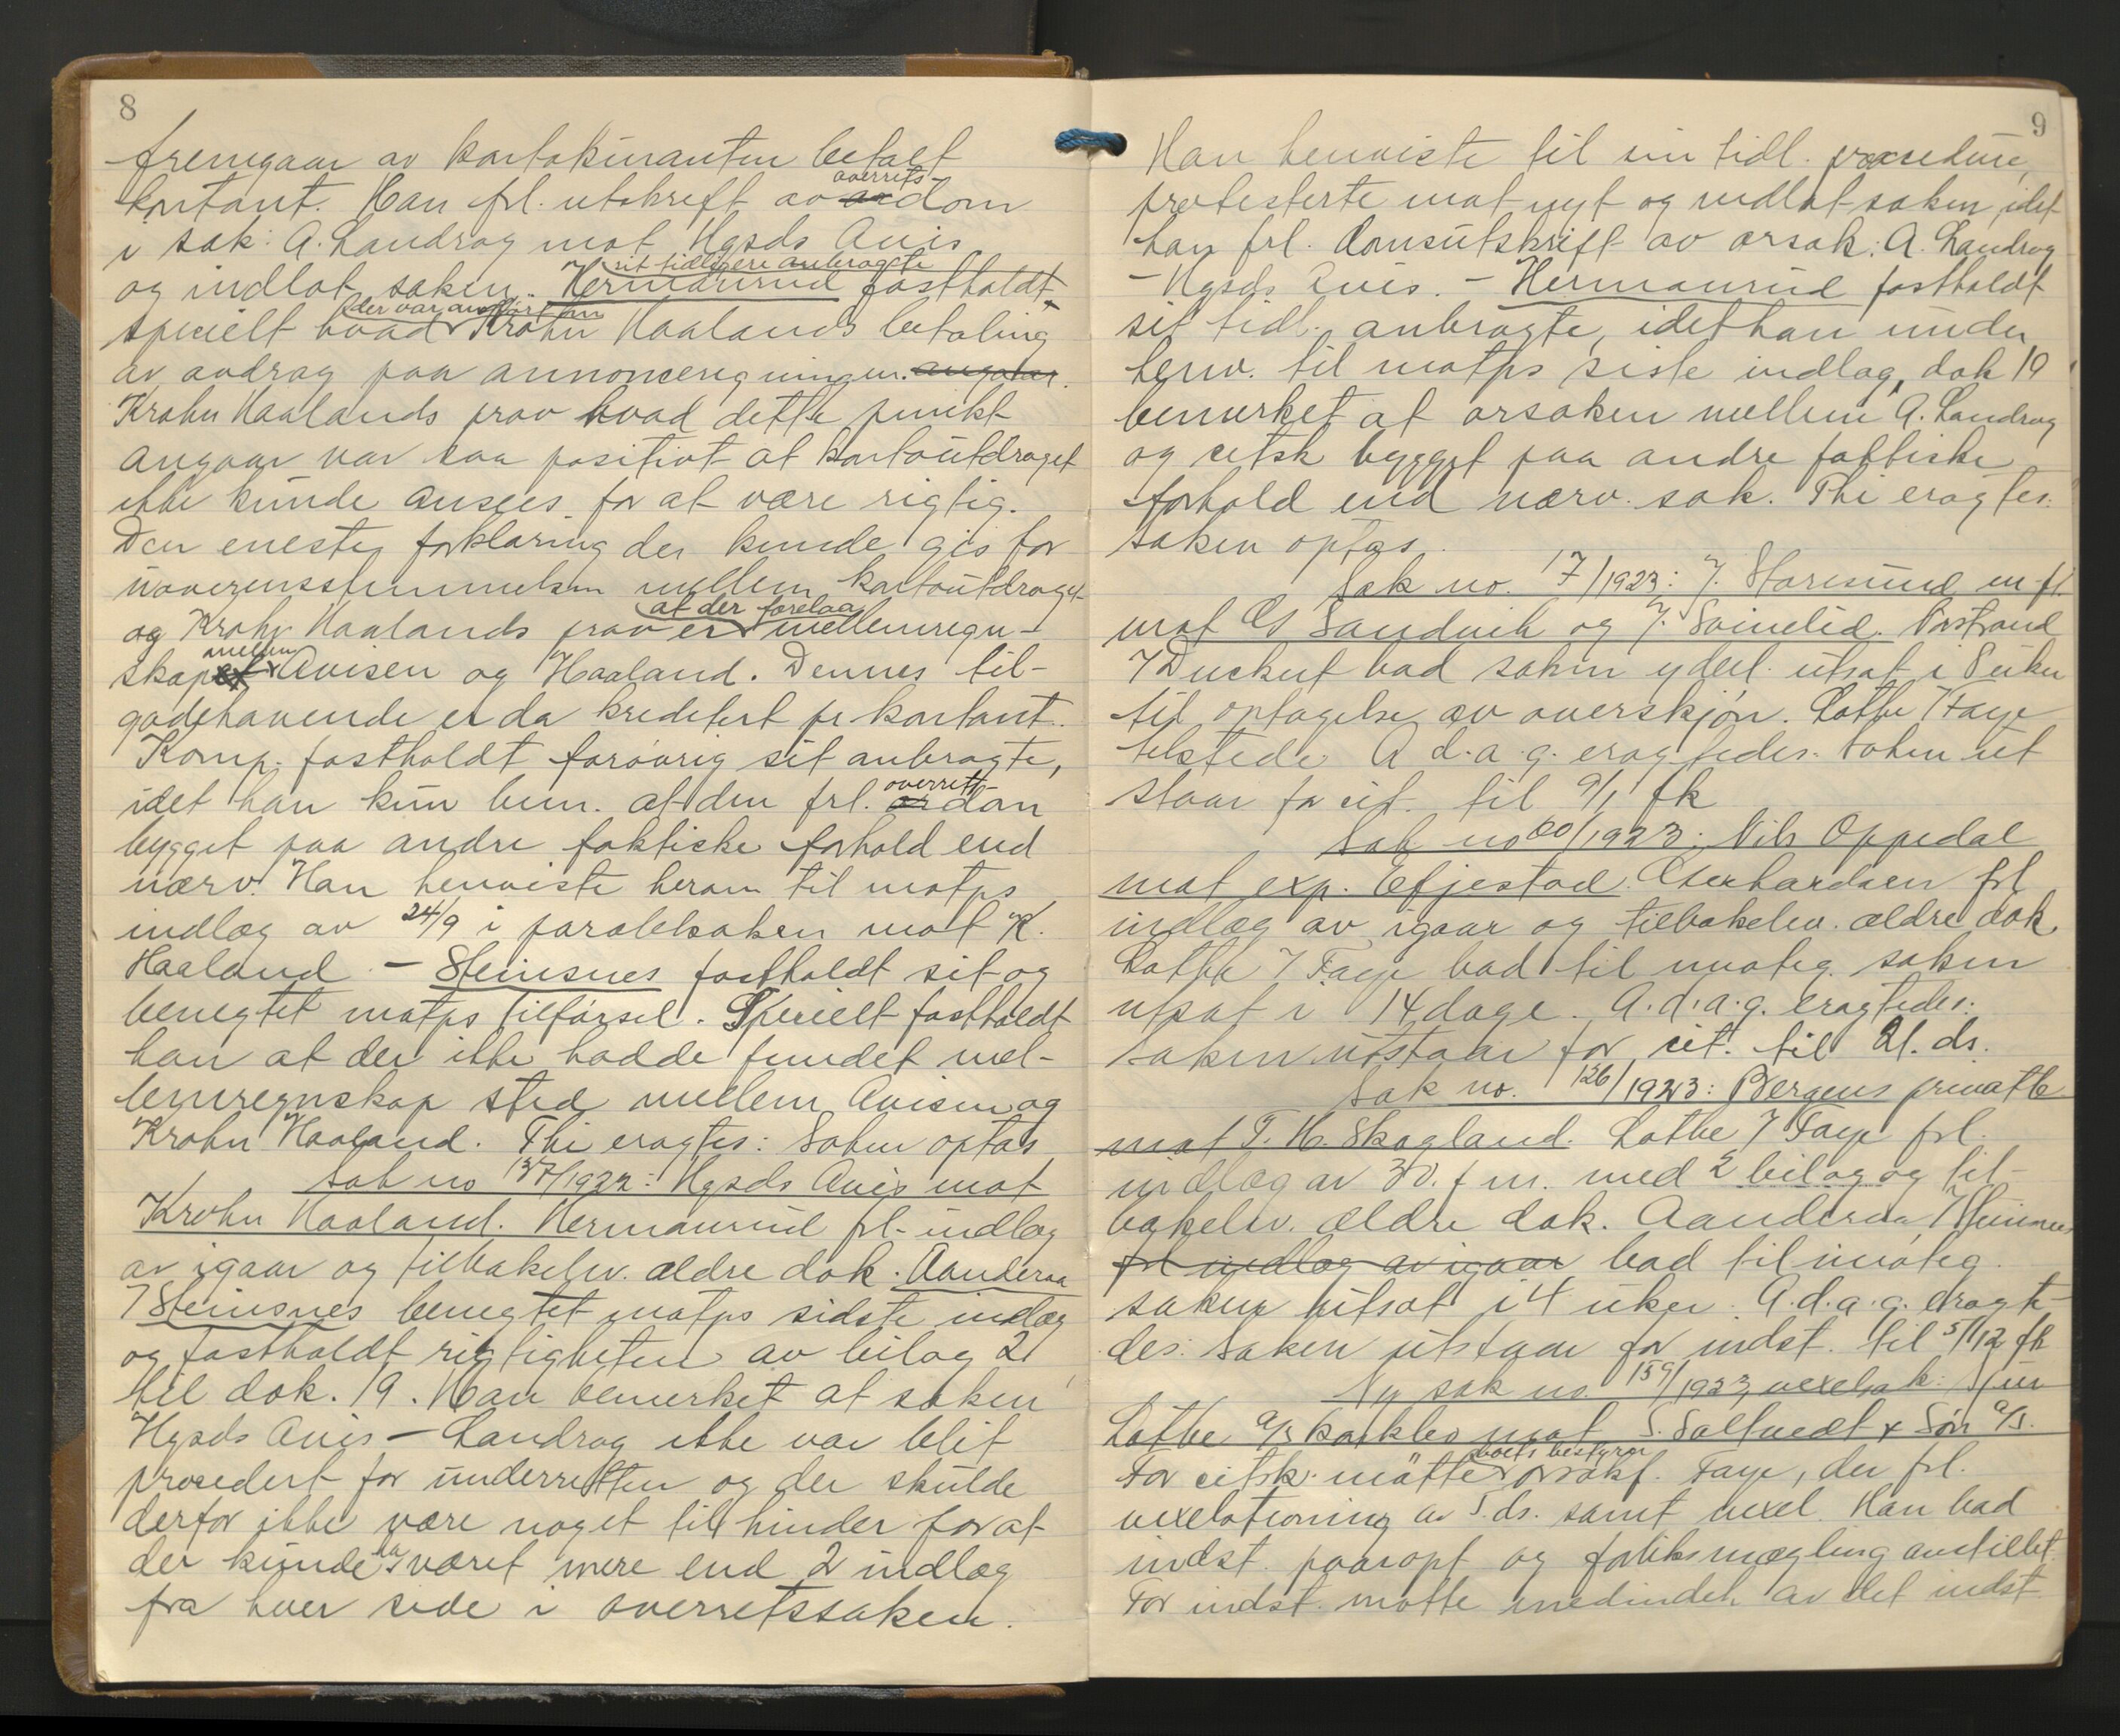 8
fremgaar av kontokuranten betalt
kontant. Han frl. utskrift av overrets dom
i sak: A. Landrog mot Hgsds Avis
og indlot saken. Hermanrud fastholdt sit tidligere anbragte
specielt hvad der var anført om Krohn Haalands betaling
av avdrag paa annonceregningen. angaar.
Krohn Haalands prov hvad dette punkt
angaar var saa positivt at kontoutdraget
ikke kunde ansees for at være rigtig.
Den eneste forklaring der kunde gis for
uoverensstemmelsen mellem kontoutdraget
og Krohn Haalands prov er at der forelaa mellemregn-
skap mellem Avisen og Haaland. Dennes til-
godehavende er da kreditert pr kontant.
Komp. fastholdt forøvrig sit anbragte,
idet han kun bem. at den frl. overretts dom
bygget paa andre faktiske forhold end
nærv. Han henviste herom til motps
indlæg av 24/9 i paralelsaken mot K.
Haaland - Steinsnes fastholdt sit og
benegtet motps tilførsel. Specielt fastholdt
han at der ikke hadde fundet mel-
lemregnskap sted mellem Avisen og
Krohn Haaland. Thi eragtes: Saken optas
Sak no 137/1922: Hgsds Avis mot
Krohn Haaland. Hermanrud frl. indlæg
av igaar og tilbakelev. ældre dok. Aanderaa
7 Steinsnes benegtet motps sidste indlæg
og fastholdt rigtigheten av bilag 2
til dok. 19. Han bemerket at saken
Hgsds Avis - Landrog ikke var blit
procedert for underretten og der skulde
derfor ikke være noget til hinder for at
der kunde ha været mere end 2 indlæg
fra hver side i overretssaken.
9
Han henviste til sin tidl. procedure,
protesterte mot nyt og indlot saken, idet
han frl. domsutskrift av orsak: A. Landrog
- Hgsds Avis. - Hermanrud fastholdt
sit tidl. anbragte, idet han under
henv. til motps siste indlæg, dok 19
bemerket at orsaken mellem A. Landrog
og citsk bygget paa andre faktiske
forhold end nærv. sak. Thi eragtes:
saken optas.
Sak no. 17/1923: J. Storesund m fl.
mot O Sandvik og J. Svinelid. Vastrand
7 Duckert bad saken yderl. utsat i uker
til optagelse av overskjøn. Lothe 7 Faye
tilstede. A d. a. g. eragtedes: Saken ut
staar for cit. til 9/1 fk
Sak no 60/1923: Nils Oppedal
mot exp. Efjestad. Eberhardsen frl
indlæg av igaar og tilbakelev. ældre dok.
Lothe 7 Faye bad til imøteg. saken
utsat i 14 dage. A. d. a. g. eragtedes:
Saken utstaar for cit. til 21. ds.
Sak no. 126/1923: Bergens privatb
mot T. H. Skogland. Lothe 7 Faye frl.
indlæg av 30. f m. med 2 bilag og til-
bakelev. ældre dok. Aanderaa 7 Steinsnes
frl indlæg av igaar bad til imøteg.
saken utsat i 4 uker. A. d. a. g. eragte-
des: Saken utstaar for indst. til 5/12 fk
Ny sak no. 159/1923 vexelsak:
Lothe a/s konkbo mot S. Saltvedt & Søn a/s.
For citsk. møtte boets bestyrer orsakf. Faye, der frl.
vexelstevning av 5. ds. samt vexel. Han bad
indst. paaropt og forliksmægling anstillet.
For indst. møtte medindeh. av det indst.